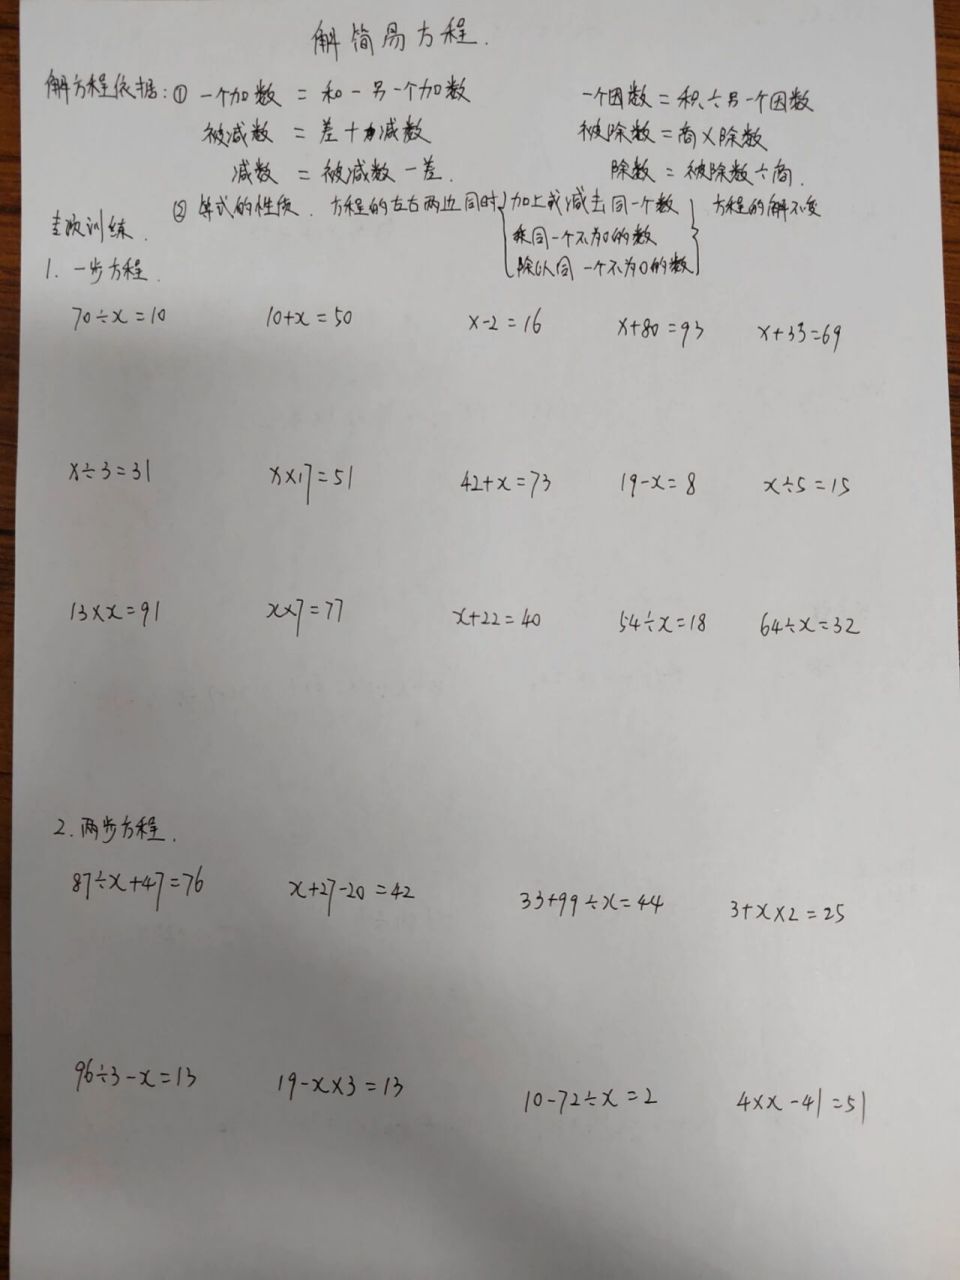 解简易方程.
解方程依据:① 一个加数 = 和-另一个加数 一个因数=积÷另一个因数
被减数 = 差+减数 被除数=商×除数
减数 = 被减数-差. 除数=被除数÷商.
② 等式的性质. 方程的左右两边同时 加上或减去同一个数 方程的解不变
乘同一个不为0的数
除以同一个不为0的数
专项训练.
1. 一步方程.
70÷x=10 10+x=50 x-2=16 x+80=93 x+33=69
x÷3=31 x×17=51 42+x=73 19-x=8 x÷5=15
13×x=91 x×7=77 x+22=40 54÷x=18 64÷x=32
2. 两步方程.
87÷x+47=76 x+27-20=42 33+99÷x=44 3+x×2=25
96÷3-x=13 19-x×3=13 10-72÷x=2 4×x-41=51